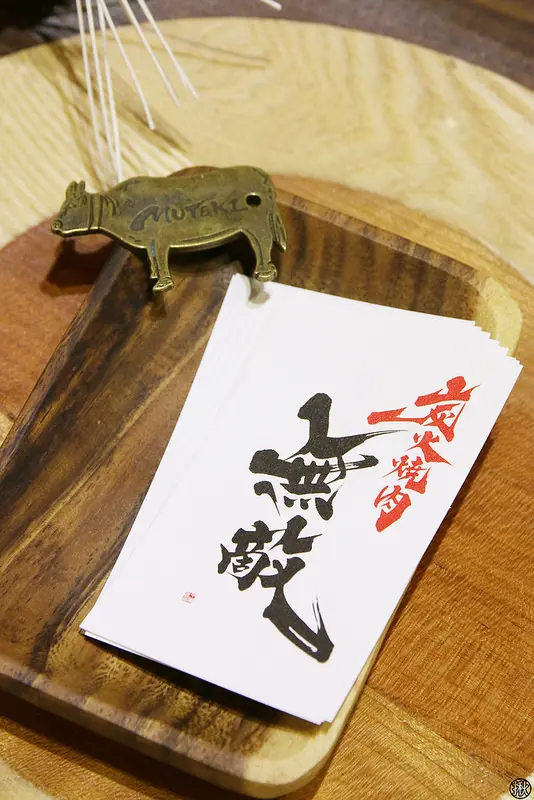 MUTEKI
炭火焼肉
無敵